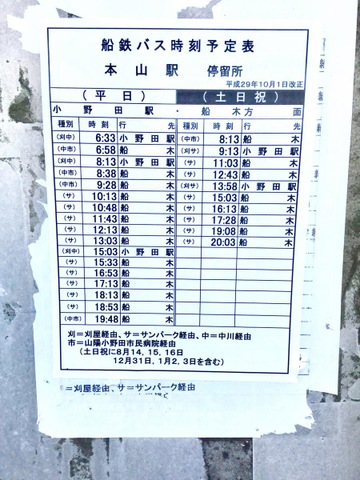 船鉄バス時刻予定表
本山駅 停留所
平成29年10月1日改正
(平日) (土日祝)
小野田駅・船木方面
種別 時刻 行先 種別 時刻 行先
(刈中) 6:33 小野田駅 (中市) 8:13 船木
(中市) 6:58 船木 (刈サ) 9:13 小野田駅
(刈中) 8:13 小野田駅 (サ) 11:03 船木
(中市) 8:38 船木 (サ) 12:43 船木
(中市) 9:28 船木 (刈サ) 13:58 小野田駅
(サ) 10:13 船木 (サ) 15:03 船木
(サ) 10:48 船木 (サ) 16:13 船木
(サ) 11:43 船木 (サ) 17:28 船木
(サ) 12:13 船木 (サ) 19:08 船木
(サ) 13:03 船木 (サ) 20:03 船木
(刈中) 15:03 小野田駅
(サ) 15:33 船木
(サ) 16:53 船木
(サ) 17:13 船木
(サ) 18:13 船木
(サ) 18:53 船木
(中市) 19:48 船木
刈=刈屋経由、サ=サンパーク経由、中=中川経由
市=山陽小野田市民病院経由
(土日祝に8月14, 15, 16日
12月31日, 1月2, 3日を含む)
=刈屋経由、サ=サンパーク経由